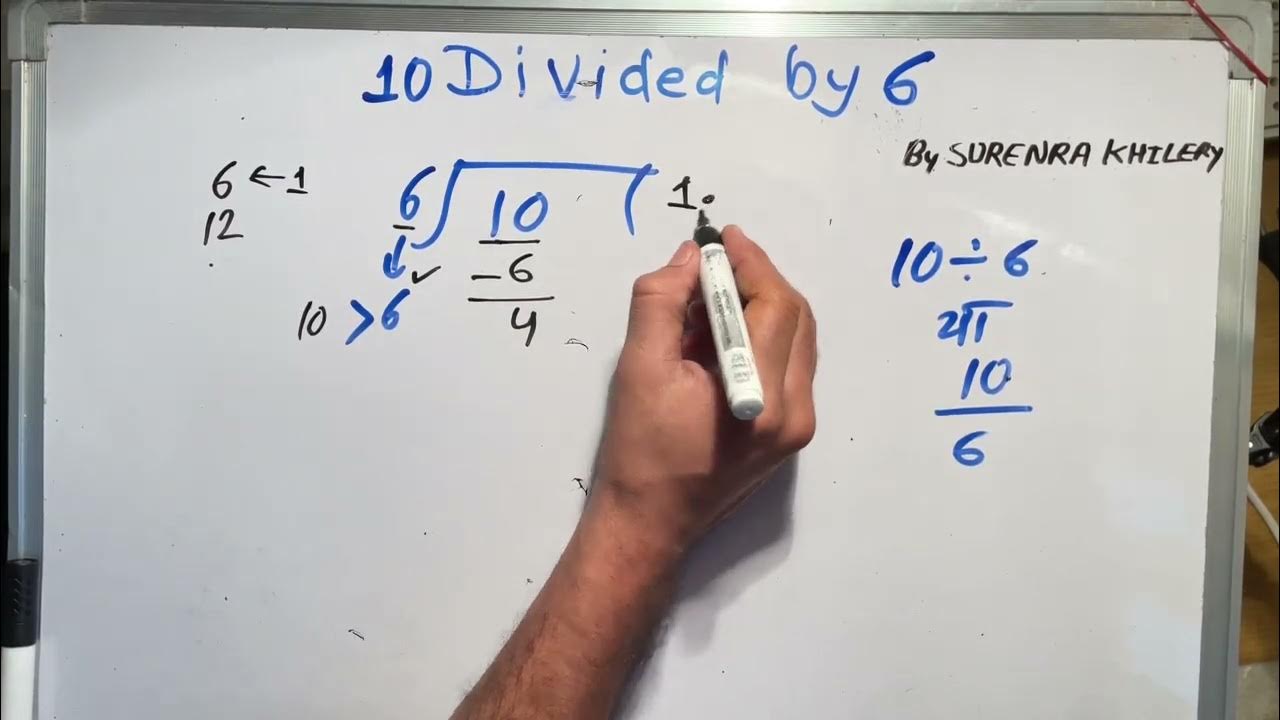 10 Divided by 6
By SURENRA KHILERY
6 ← 1
12
6 10 1.
-6
4
10 > 6
10 ÷ 6
या
10
6